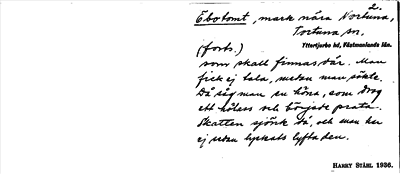 2.
Ebotomt, mark nära Nortuna,
Tortuna sn,
(forts.) Yttertjurbo hd, Västmanlands län.
som skall finnas där. Man
fick ej tala, medan man sökte.
Då såg man en höna, som drog
ett hölass och började prata.
Skatten sjönk då, och man har
ej sedan lyckats lyfta den.
HARRY STÅHL 1936.